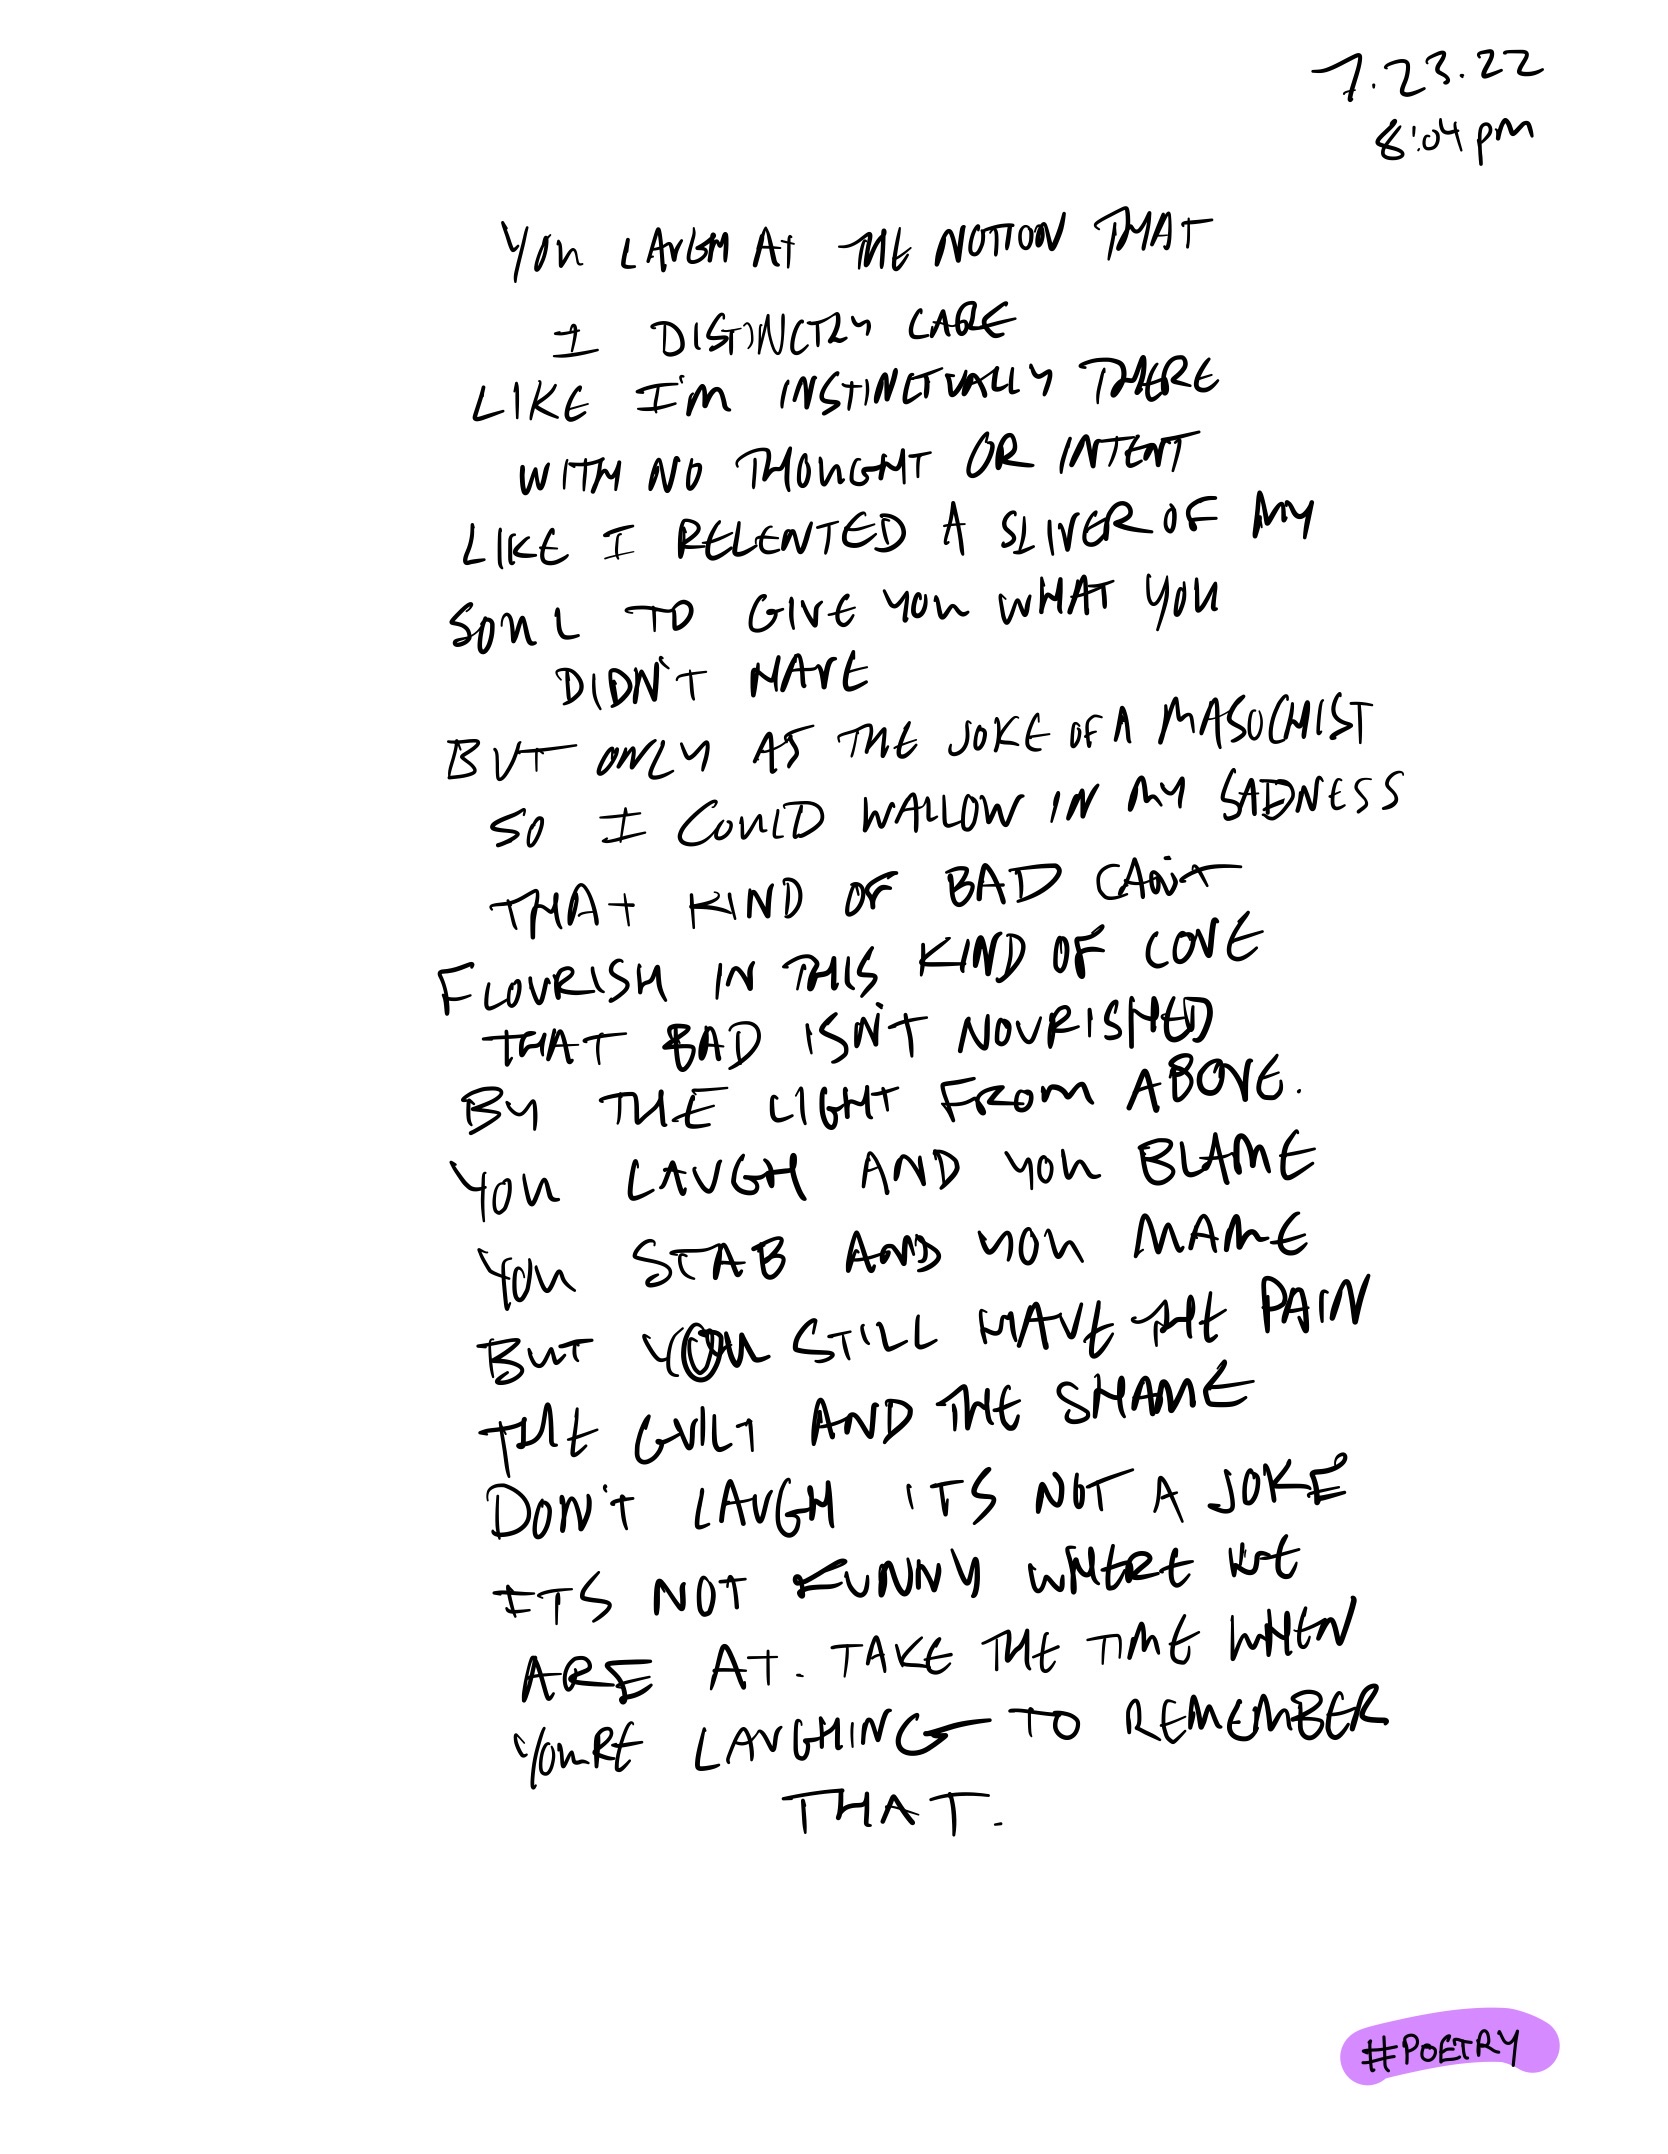 7.23.22
8:04 pm
YOU LAUGH AT THE NOTION THAT
I DISTINCTLY CARE
LIKE I'M INSTINCTUALLY THERE
WITH NO THOUGHT OR INTENT
LIKE I RELENTED A SLIVER OF MY
SOUL TO GIVE YOU WHAT YOU
DIDN'T HAVE
BUT ONLY AS THE JOKE OF A MASOCHIST
SO I COULD WALLOW IN MY SADNESS
THAT KIND OF BAD CAN'T
FLOURISH IN THIS KIND OF LOVE
THAT BAD ISN'T NOURISHED
BY THE LIGHT FROM ABOVE.
YOU LAUGH AND YOU BLAME
YOU STAB AND YOU MAME
BUT YOU STILL HAVE THE PAIN
THE GUILT AND THE SHAME
DON'T LAUGH ITS NOT A JOKE
ITS NOT FUNNY WHERE WE
ARE AT. TAKE THE TIME WHEN
YOU'RE LAUGHING TO REMEMBER
THAT.
#POETRY